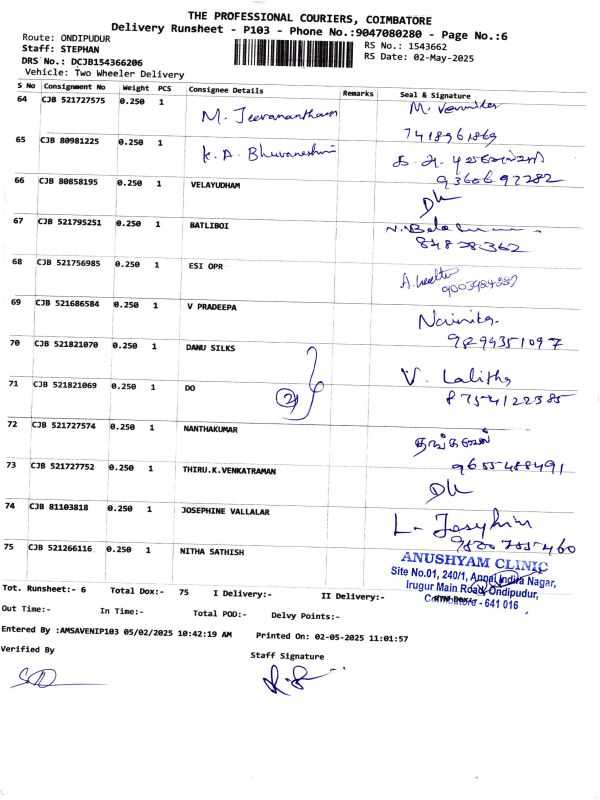 THE PROFESSIONAL COURIERS, COIMBATORE
Delivery Runsheet - P103 - Phone No.:9047080280 - Page No.:6
Route: ONDIPUDUR
Staff: STEPHAN
RS No.: 1543662
DRS No.: DCJB154366206
RS Date: 02-May-2025
Vehicle: Two Wheeler Delivery
S No Consignment No Weight PCS Consignee Details Remarks Seal & Signature
64 CJB 521727575 0.250 1 M. Jeevanantham M.
7418961869
65 CJB 80981225 0.250 1 K. A. Bhuvaneshwari
9360697282
66 CJB 80858195 0.250 1 VELAYUDHAM DL
67 CJB 521795251 0.250 1 BATLIBOI
68 CJB 521756985 0.250 1 ESI OPR
69 CJB 521686584 0.250 1 V PRADEEPA Nainika.
9894351097
70 CJB 521821070 0.250 1 DANU SILKS V. Lalitha
71 CJB 521821069 0.250 1 DO 8754122385
72 CJB 521727574 0.250 1 NANTHAKUMAR
9655488491
73 CJB 521727752 0.250 1 THIRU.K.VENKATRAMAN DL
74 CJB 81103818 0.250 1 JOSEPHINE VALLALAR
75 CJB 521266116 0.250 1 NITHA SATHISH
ANUSHYAM CLINIC
Site No.01, 240/1, Annai Indira Nagar,
Irugur Main Road, Ondipudur,
Coimbatore - 641 016
Tot. Runsheet:- 6 Total Dox:- 75 I Delivery:- II Delivery:- RTN Dox:-
Out Time:- In Time:- Total POD:- Delvy Points:-
Entered By :AMSAVENIP103 05/02/2025 10:42:19 AM Printed On: 02-05-2025 11:01:57
Verified By
Staff Signature